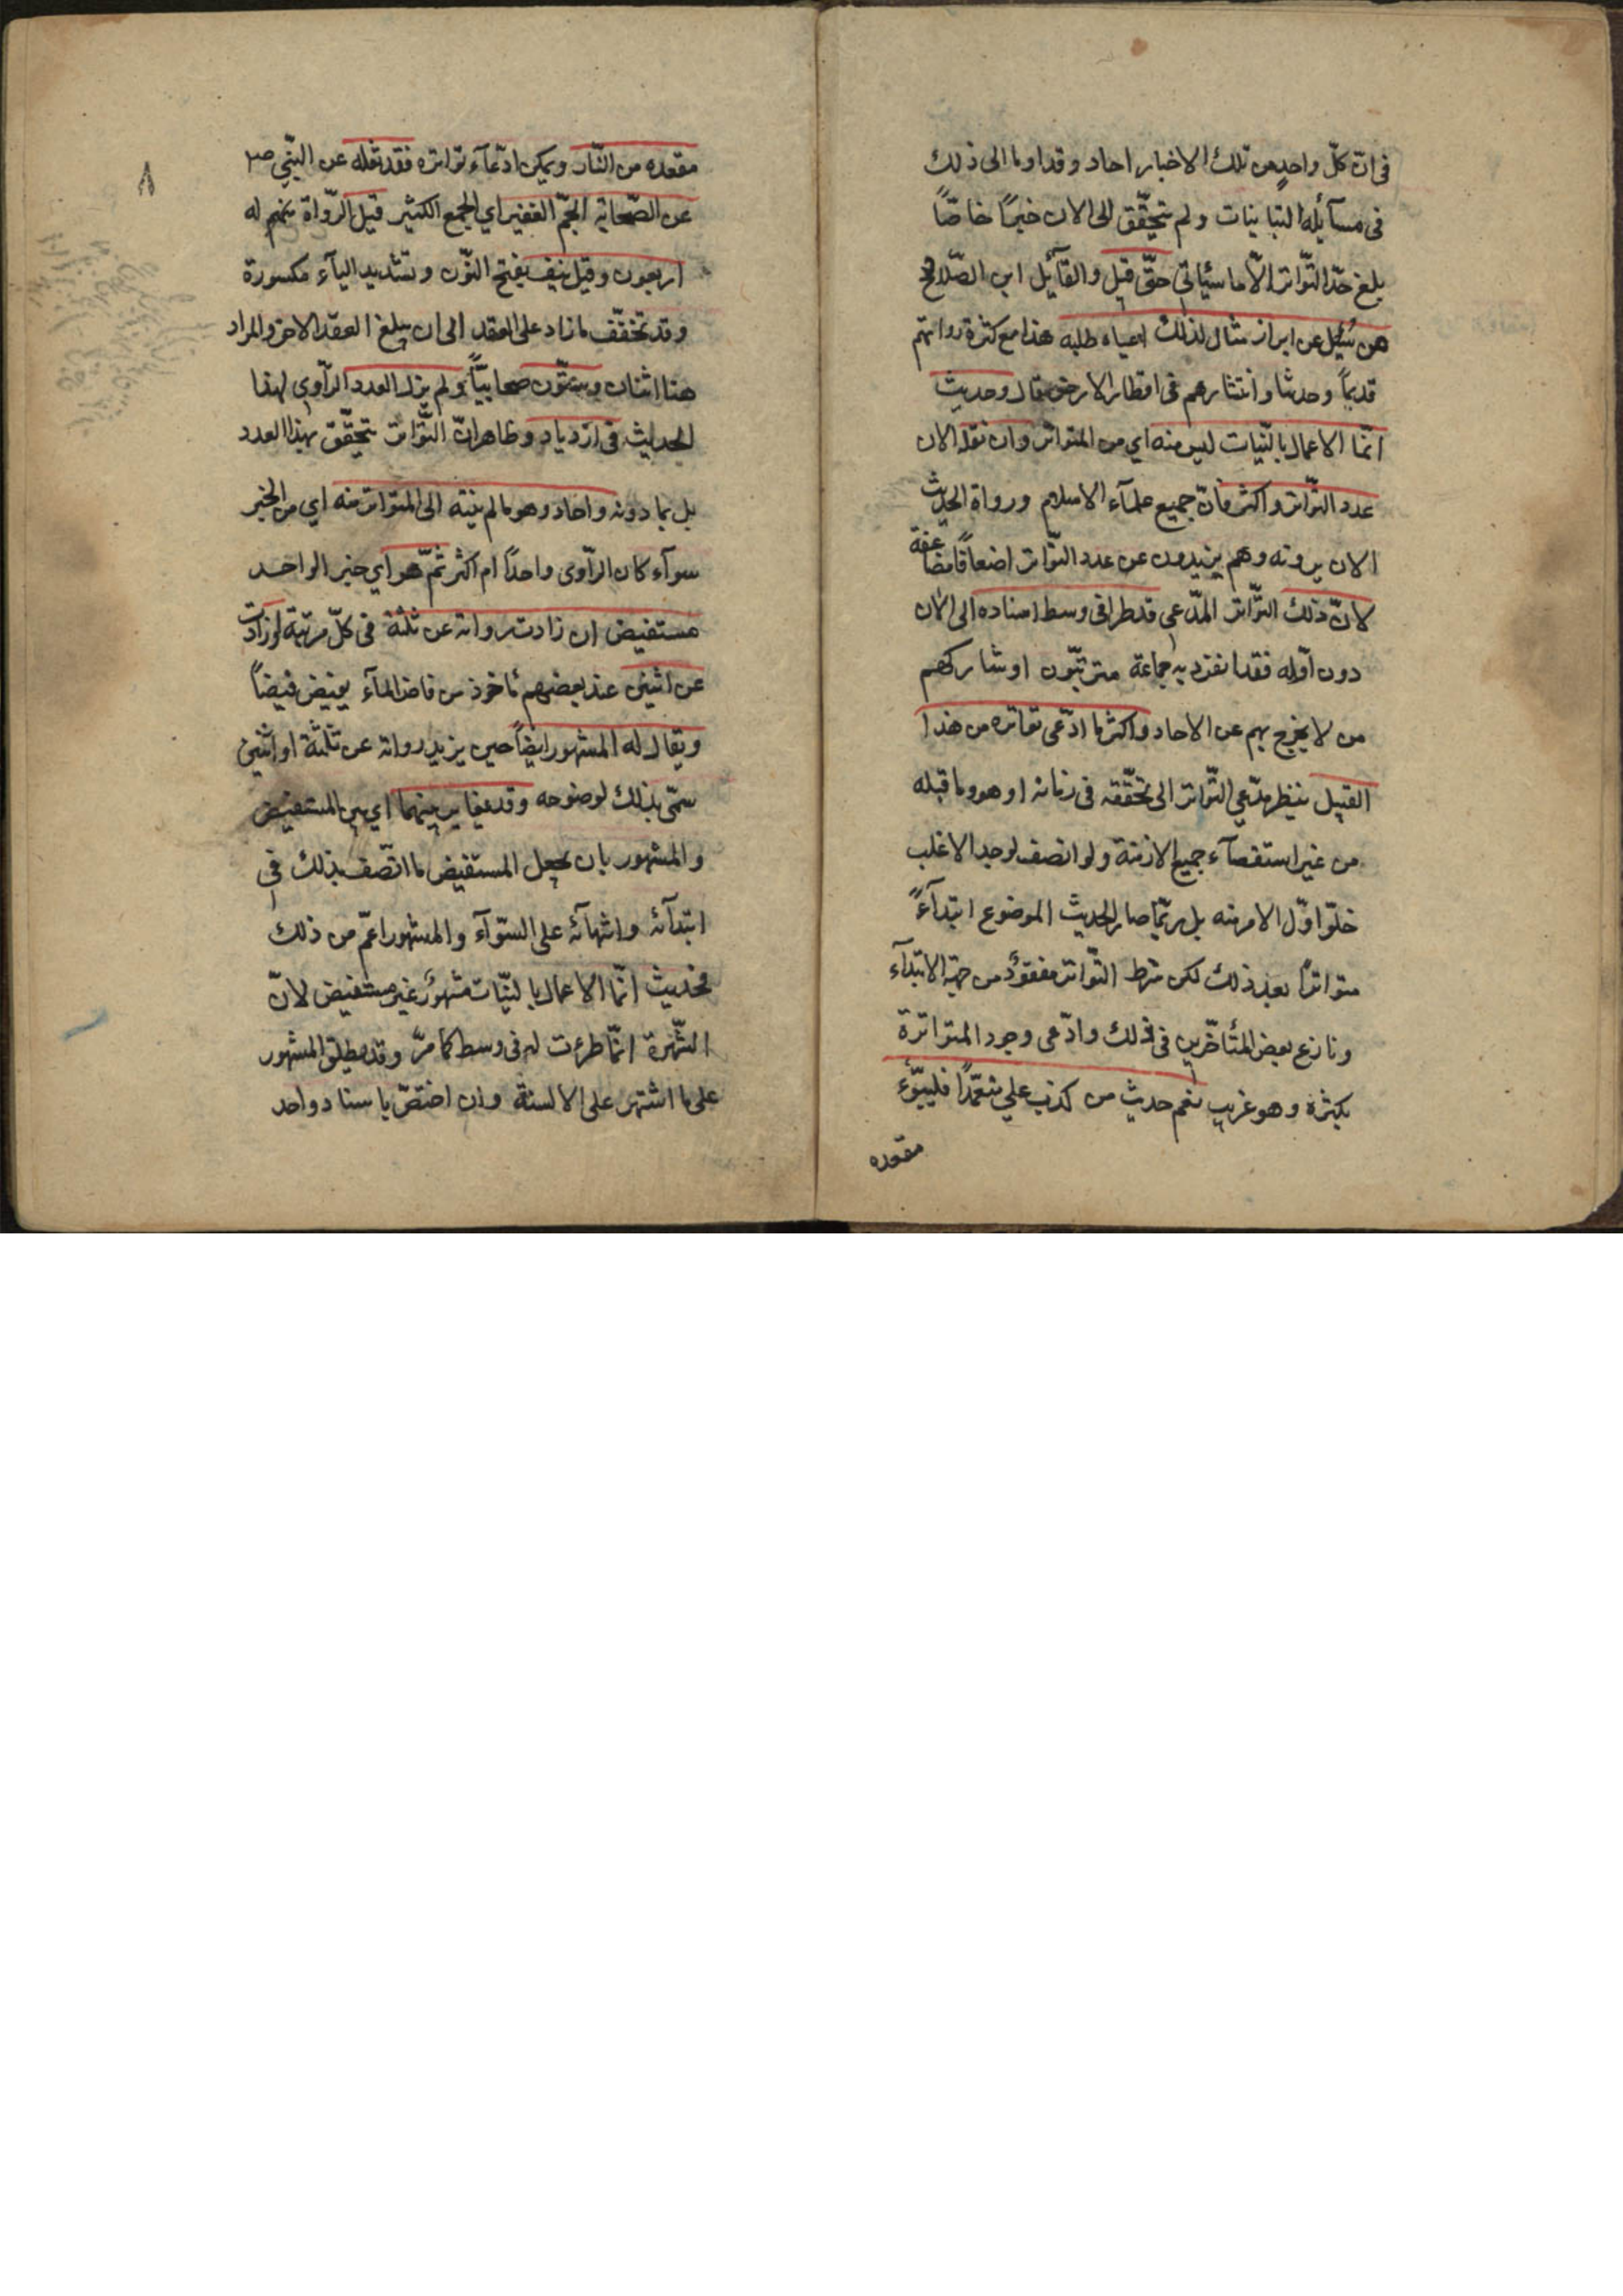 فى انّ كلّ واحد من تلك الاخبار احاد وقد اوما الى ذلك
فى مسآئله التبانيات ولم تحقّق الى الان خبرًا خاصًّا
بلغ حدّ التّواتر الّا ما سيأتى حتّى قيل والقآئل ابن الصّلاح
من سُئِل عن ابراز مثال لذلك اعياه طلبه هذا مع كثرة رواتهم
قديمًا وحديثا وانتشارهم فى اقطار الارض قال وحديث
انّما الاعمال بالنّيات ليس منه اي من المتواتر وان نقله الان
عدد التّواتر واكثر فانّ جميع علمآء الاسلام ورواة الحديث
الان يروونه وهم يزيدون عن عدد التّواتر اضعافا مضاعفة
لانّ ذلك التّواتر المدّعى قد طرا فى وسط اسناده الى الان
دون اوّله فقد انفرد به جماعة مترتبّون او شاركهم
من لا يخرج بهم عن الاحاد واكثر ما ادّعى تواتره من هذا
القبيل ينظر مدّعي التّواتر الى تحقّقه فى زمانه او هو وما قبله
من غير استقصآء جميع الازمنة ولو انصف لوجد الاغلب
خلوّ اوّل الامر منه بل ربّما صار الحديث الموضوع ابتدآءً
متواترًا بعد ذلك لكن شرط التّواتر مفقودٌ من جهة الابتدآء
ونازع بعض المتأخّرين فى ذلك وادّعى وجود المتواترة
بكثرة وهو غريب نعم حديث من كذب علي متعمّدًا فليبّوء
مقعده
٨
مقعده من النّار ويمكن ادّعآء تواتره فقد نقله عن النّبي ص
عن الصّحابة الجمّ الغفير اي الجمع الكثير قيل الرّواة منهم له
اربعون وقيل نيف بفتح النّون وتشديد اليآء مكسورة
وقد تخفّف ما زاد على العقد الى ان يبلغ العقد الاخر والمراد
هنا اثنان وستّون صحابيًّا ولم يزل العدد الرّاوي لهذا
الحديث فى ازدياد وظاهر انّ التّواتر يتحقّق بهذا العدد
بل بما دونه واحاد وهو ما لم ينته الى المتواتر منه اي من الخبر
سوآء كان الرّاوى واحدًا ام اكثر ثمّ هو اي خبر الواحد
مستفيض ان زادت رواته عن ثلثة فى كلّ مرتبة او زادت
عن اثنين عند بعضهم مأخوذ من فاض المآء يفيض فيضاً
ويقال له المشهور ايضاً حين يزيد رواته عن ثلثة او اثنين
سمّى بذلك لوضوحه وقد يغاير بينهما اي بين المستفيض
والمشهور بان يجعل المستفيض ما اتّصف بذلك في
ابتدآئه وانتهآئه على السّوآء والمشهور اعمّ من ذلك
فحديث انّما الاعمال بالنيّات مشهورٌ غير مستفيض لانّ
الشّهرة انّما طرئت له فى وسط كما مرّ وقد يطلق المشهور
على ما اشتهر على الالسنة وان اختصّ باسناد واحد